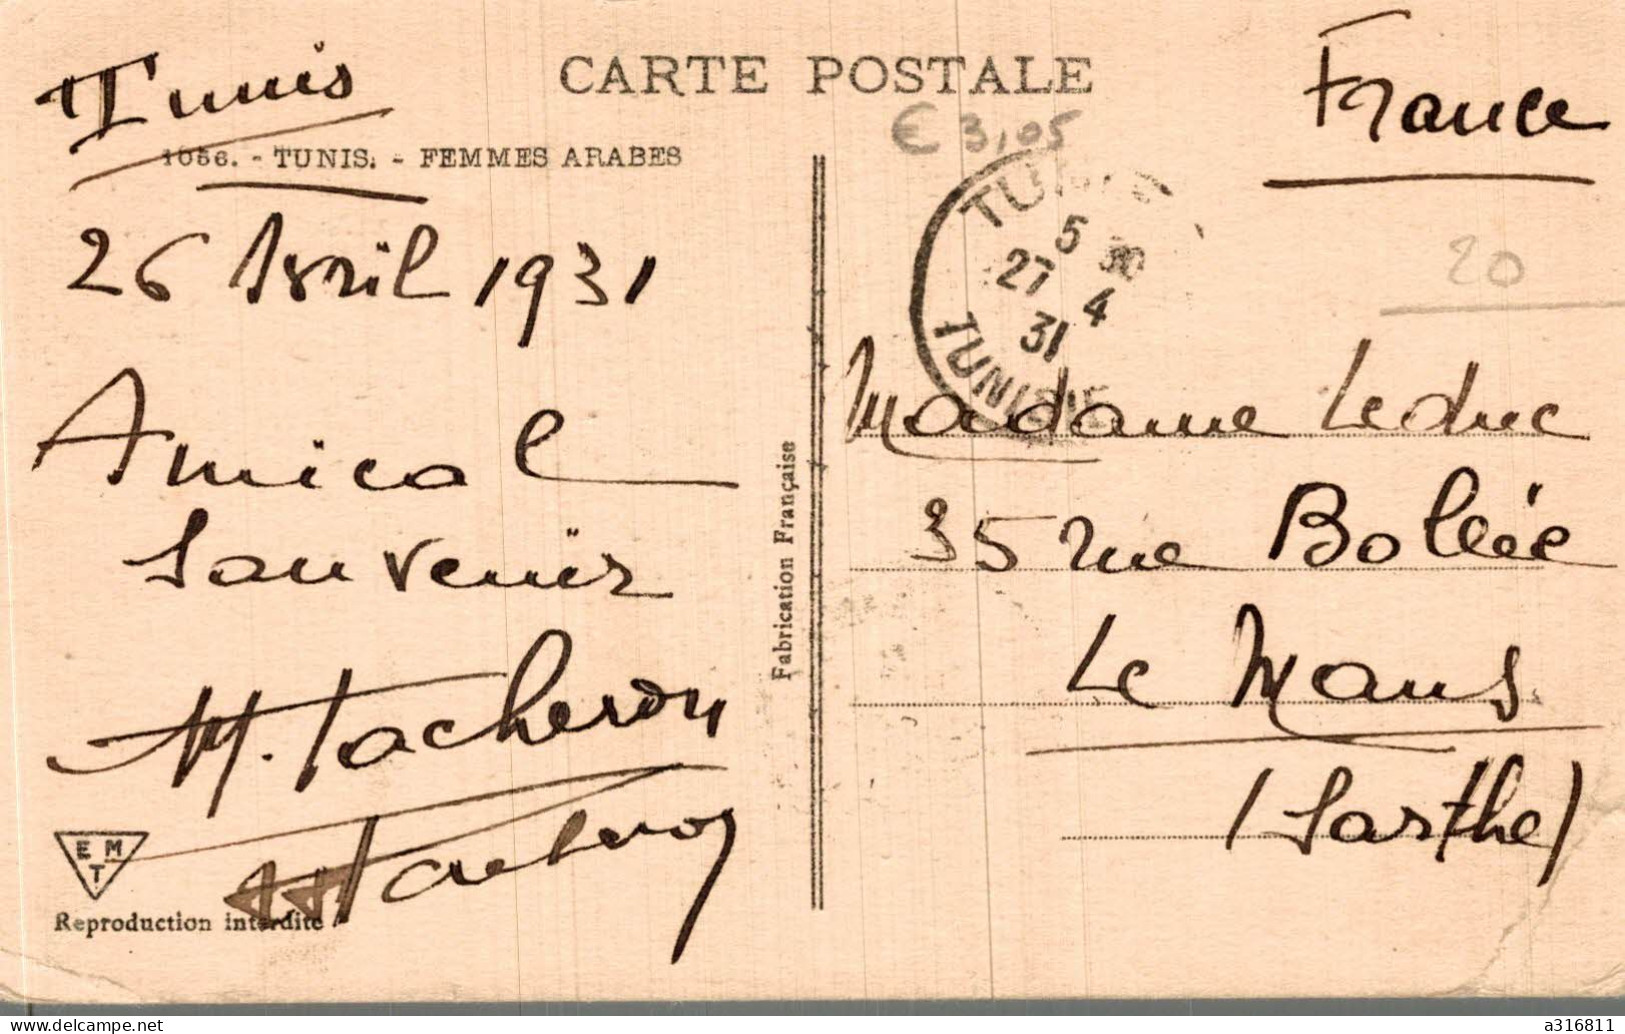 CARTE POSTALE
Tunis
1056. - TUNIS. - FEMMES ARABES
26 Avril 1931
Amical
Souvenir
M. Tacheron
E M
T
Reproduction interdite
Fabrication Française
France
€ 3,05
20
5 30
27 4
31
TUNISIE
Madame Leduc
35 rue Bollée
Le Mans
(Sarthe)
www.delcampe.net
a316811